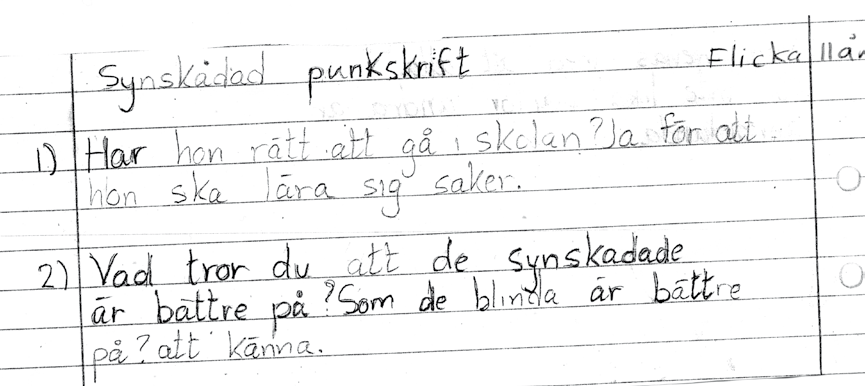 Synskådad punkskrift Flicka 11år
1) Har hon rätt att gå i skolan? Ja för att
hon ska lära sig saker.
2) Vad tror du att de synskadade
är bättre på? Som de blinda är bättre
på? att känna.